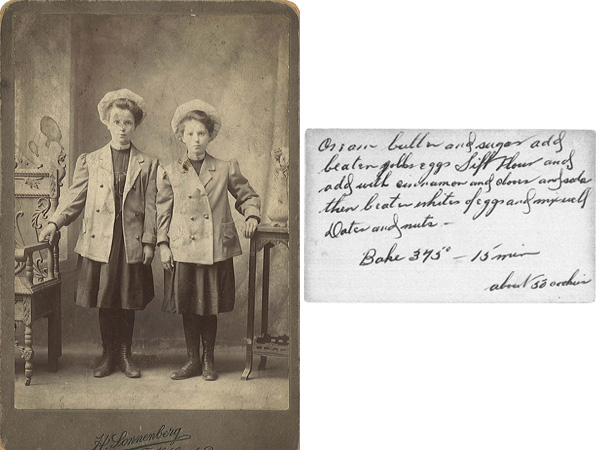 H. Sonnenberg
Cream butter and sugar add
beaten yolks eggs Sift Flour and
add with cinnamon and cloves and soda
then beaten whites of eggs and mix well
Dates and nuts –
Bake 375° – 15 min
about 50 cookies